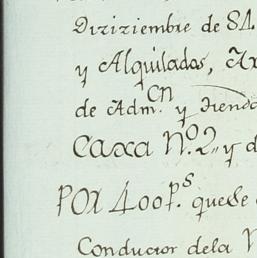 Diziziembre de 84
y Alquilados,
de Adm.cn y tienda
Caxa N.o 2,, y d
Por 400 p.s que se
Conductor dela